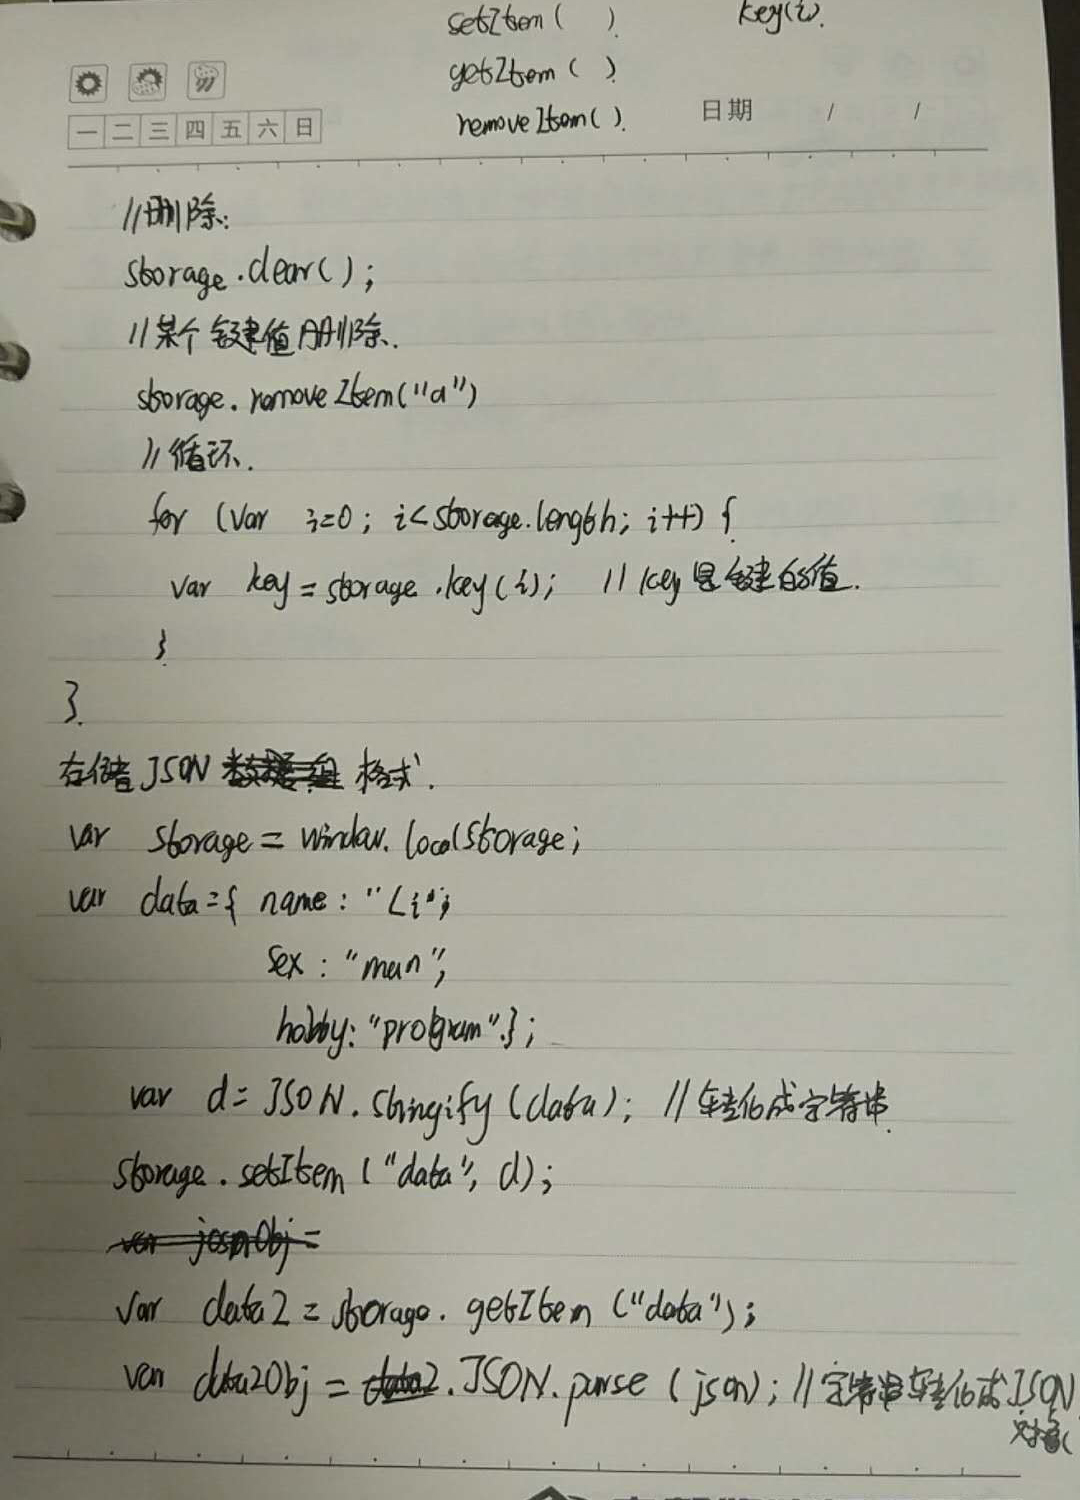 setItem ( ). key(i).
getItem ( ).
removeItem( ).
一 二 三 四 五 六 日
日期 / /
//删除:
storage.clear( );
//某个键值删除.
storage.removeItem("a")
//循环.
for (var i=0; i<storage.length; i++) {
var key = storage.key(i); // key是键的值.
}
}.
存储 JSON 格式.
var storage = window.localStorage;
var data={ name: "Li",
sex : "man",
hobby: "program".};
var d = JSON.stringify(data); //转化成字符串.
storage.setItem ("data", d);
var josnObj =
var data2 = storage.getItem ("data");
var data2Obj = data2.JSON.parse (json); //字符串转化成JSON
对象(